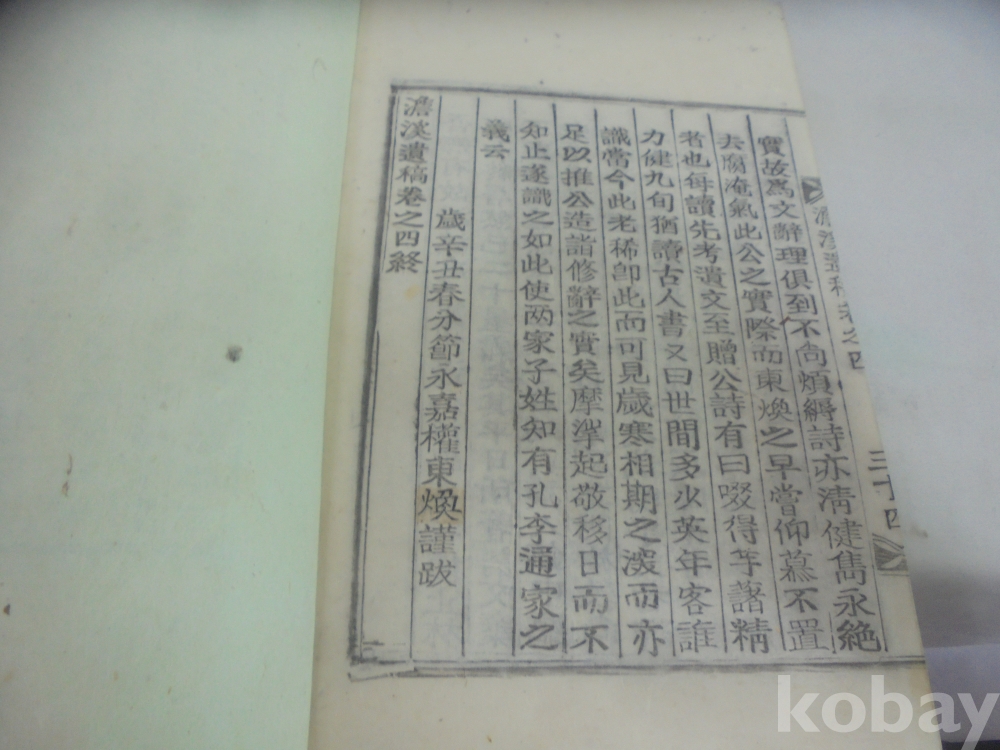 澹溪遺稿卷之四
三十四
實故爲文辭理俱到不尙煩縟詩亦淸健雋永絶
去腐淹氣此公之實際而東煥之早嘗仰慕不置
者也每讀先考遺文至贈公詩有曰啜得芋藷精
力健九旬猶讀古人書又曰世間多少英年客誰
識當今此老稀卽此而可見歲寒相期之深而亦
足以推公造諸修辭之實矣摩挲起敬移日而不
知止遂識之如此使两家子姓知有孔李通家之
義云
歲辛丑春分節永嘉權東煥謹跋
澹溪遺稿卷之四終
kobay